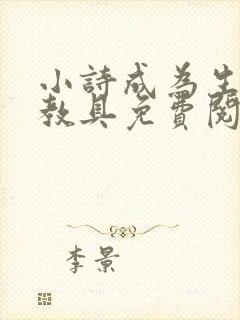 小詩成為生
教具免費閱
李景